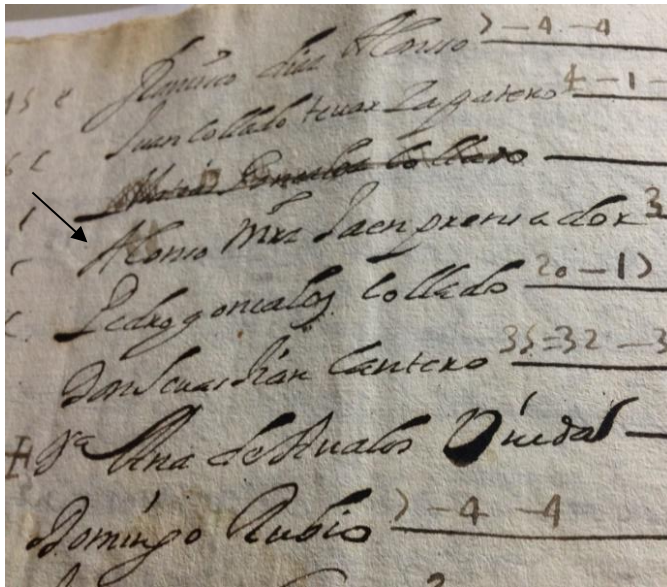 15 e Francisco diaz Alonso 7-4-4
Juan Collado tenar Zapatero 4-1-
Gonsales Collado
Alonso Mrz Jaen prensador 3
Pedro gonzales Collado 20-17
Don Seuastian Cantero 35-32-3
Da Ana de Aualos Viuda
Domingo Rubio 7-4-4